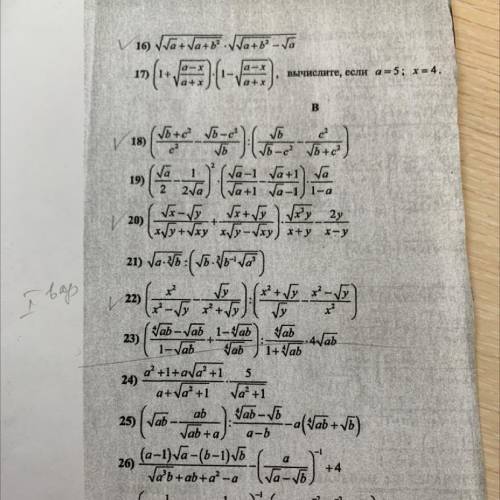 16) √(√a + √(a+b²)) · √(√(a+b²) − √a)
17) (1 + √((a−x)/(a+x))) · (1 − √((a−x)/(a+x))), вычислите, если a = 5; x = 4.
В
18) ((√b + c²)/c² − (√b − c²)/√b) : (√b/(√b − c²) − c²/(√b + c²))
19) (√a/2 − 1/(2√a))² · ((√a − 1)/(√a + 1) − (√a + 1)/(√a − 1)) · √a/(1 − a)
20) ((√x − √y)/(x√y + √xy) + (√x + √y)/(x√y − √xy)) · √(x³y)/(x + y) − 2y/(x − y)
21) √(a · ∛b) : (√b · ∛(b⁻¹√a³))
I вар
22) (x²/(x² − √y) − √y/(x² + √y)) : ((x² + √y)/√y − (x² − √y)/x²)
23) ((∜ab − √ab)/(1 − √ab) + (1 − ∜ab)/∜ab) : ∜ab/(1 + ∜ab) · 4√ab
24) (a² + 1 + a√(a² + 1))/(a + √(a² + 1)) · 5/√(a² + 1)
25) (√ab − ab/(√ab + a)) : (∜ab − √b)/(a − b) − a(∜ab + √b)
26) ((a − 1)√a − (b − 1)√b)/(√(a³b) + ab + a² − a) − (a/(√a − √b))⁻¹ + 4